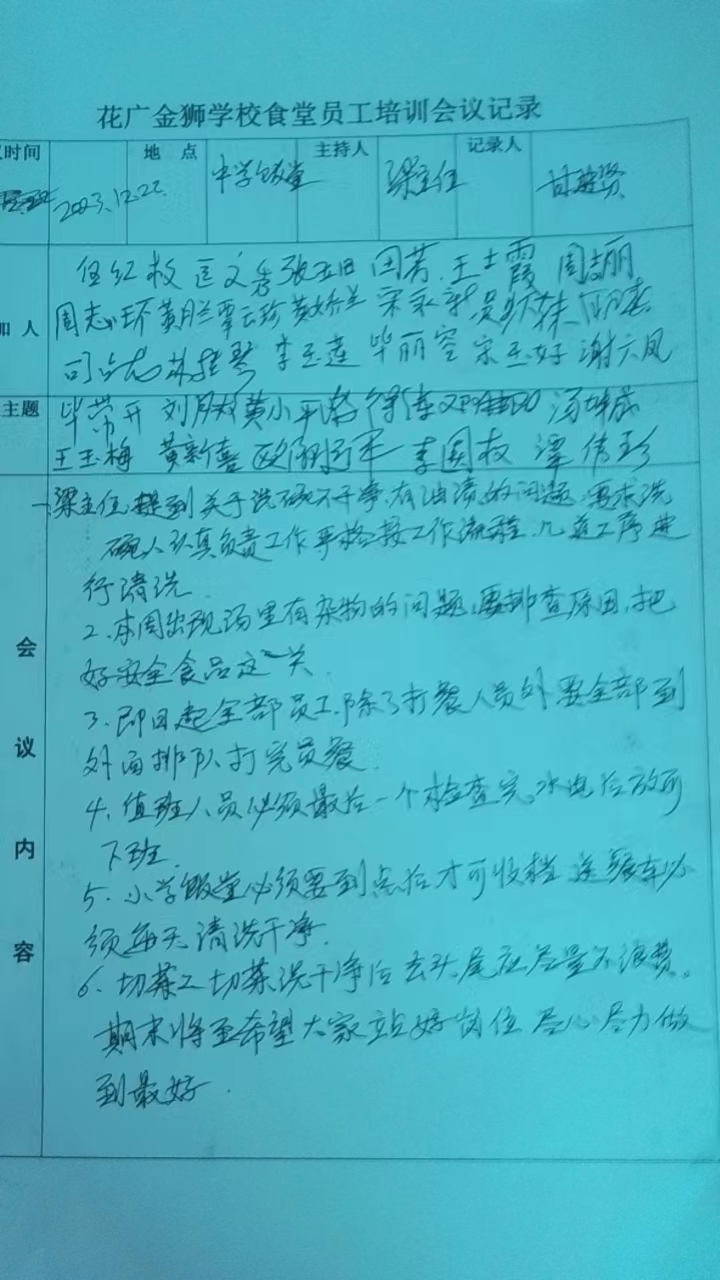 花广金狮学校食堂员工培训会议记录
议时间 地点 主持人 记录人
2023.12.22 中学饭堂 梁主任
伍红权 匡文秀 张五日 田芳 王士霞 周志丽
加人 周志环 黄月兰 覃云珍 黄娇兰 宋永新
李玉莲 毕丽容 宋玉好 谢六凤
主题 毕带开 刘月双 黄小平
王玉梅 黄新喜 李国权 谭伟珍
一梁主任,提到关于洗碗不干净,有油渍的问题,要求洗
碗人认真负责工作严格按工作流程,几道工序进
行清洗.
2、本周出现汤里有杂物的问题,要排查原因,把
好安全食品这一关.
3、即日起全部员工,除了打餐人员外要全部到
外面排队打完员餐.
4、值班人员必须最后一个检查完水电后方可
下班.
5、小学饭堂必须要到点后才可收档 运餐车必
须每天清洗干净.
6、切菜工切菜洗干净后去头尾应尽量不浪费。
期末将至希望大家站好岗位 尽心尽力做
到最好.
会
议
内
容